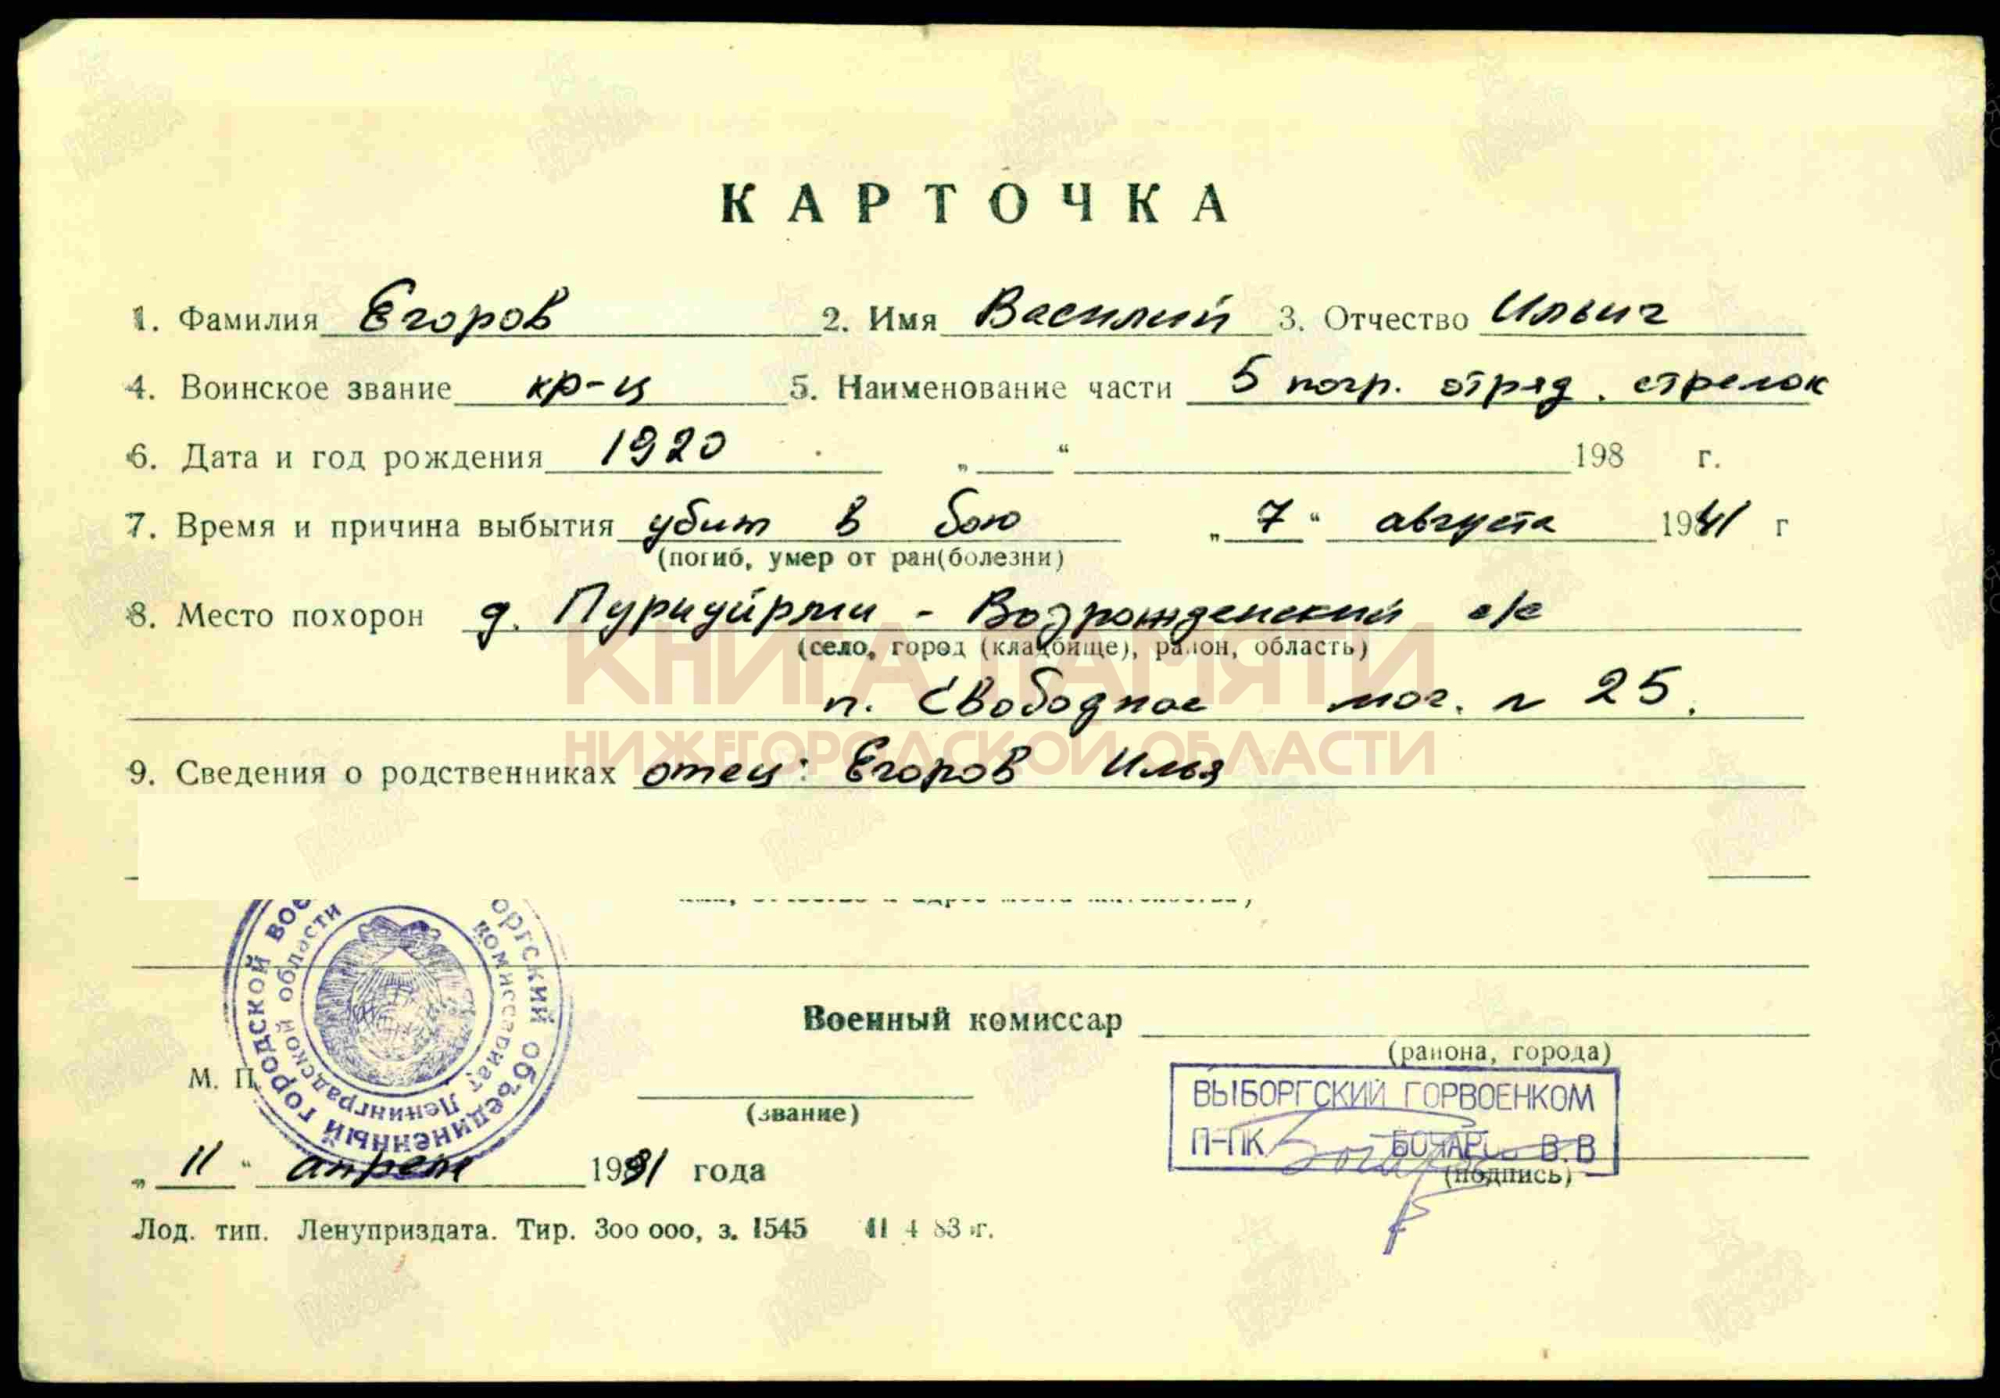 КАРТОЧКА
1. Фамилия Егоров 2. Имя Василий 3. Отчество Ильич
4. Воинское звание кр-ц 5. Наименование части 5 погр. отряд. стрелок
6. Дата и год рождения 1920 „ “ 198 г.
7. Время и причина выбытия убит в бою „7“ августа 1941 г
(погиб, умер от ран(болезни)
8. Место похорон д. Пуриуйрми - Возрожденский с/с
(село, город (кладбище), район, область)
п. Свободное мог. № 25.
КНИГА ПАМЯТИ
НИЖЕГОРОДСКОЙ ОБЛАСТИ
9. Сведения о родственниках отец: Егоров Илья
Военный комиссар
(района, города)
М. П.
объединенный городской
комиссариат Ленинградской области
(звание)
ВЫБОРГСКИЙ ГОРВОЕНКОМ
П-ПК БОЧАРОВ В.В
(подпись)
„11“ апреля 1991 года
Лод. тип. Ленуприздата. Тир. 300 000, з. 1545 11 4 83 г.